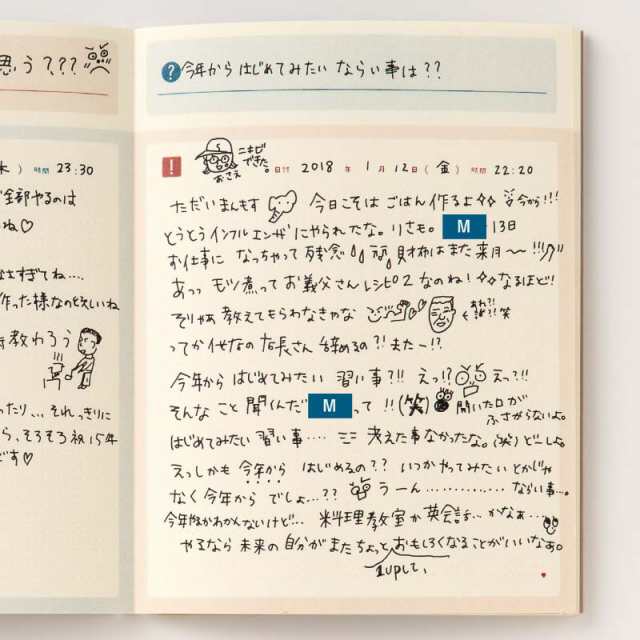 思う?,???
木) 時間 23:30
全部やるのは
ね♡
なさすぎてね....
作った様なのとえいね
教わろう
ったり、、、それっきりに
ら、そろそろ祝15年
です♡
? 今年から はじめてみたい ならい事は??
ニキビ
できた。
おさえ
! 日付 2018 年 1 月 12 日 (金) 時間 22:20
ただいまんもす 今日こそは ごはん 作るよ 今から!!!
とうとうインフルエンザにやられたな。りさも。 M 13日
お仕事に なっちゃって 残念 財布はまた 来月〜 !!!
あっっ モツ煮って お義父さん レシピ2 なのね! なるほど!
そりゃぁ 教えてもらわなきゃな あれ?! 笑
ってか 代々なの 店長さん 辞めるの?! またー!?
今年から はじめてみたい 習い事?!! えっ!? えっ?!!
そんな こと 聞くんだ M って !! (笑) 開いた口が
ふさがらないよ。
はじめてみたい 習い事.... 考えた事なかったな。(笑) どーしよ。
えっしかも 今年から はじめるの?? いつかやってみたいとかじゃ
なく 今年から でしょ...?? うーん............... ならい事...。
今年やるかわかんないけど... 料理教室か 英会話... かなぁ...
やるなら 未来の 自分が またちょっと おもしろくなる ことがいいなぁ。
1upして、